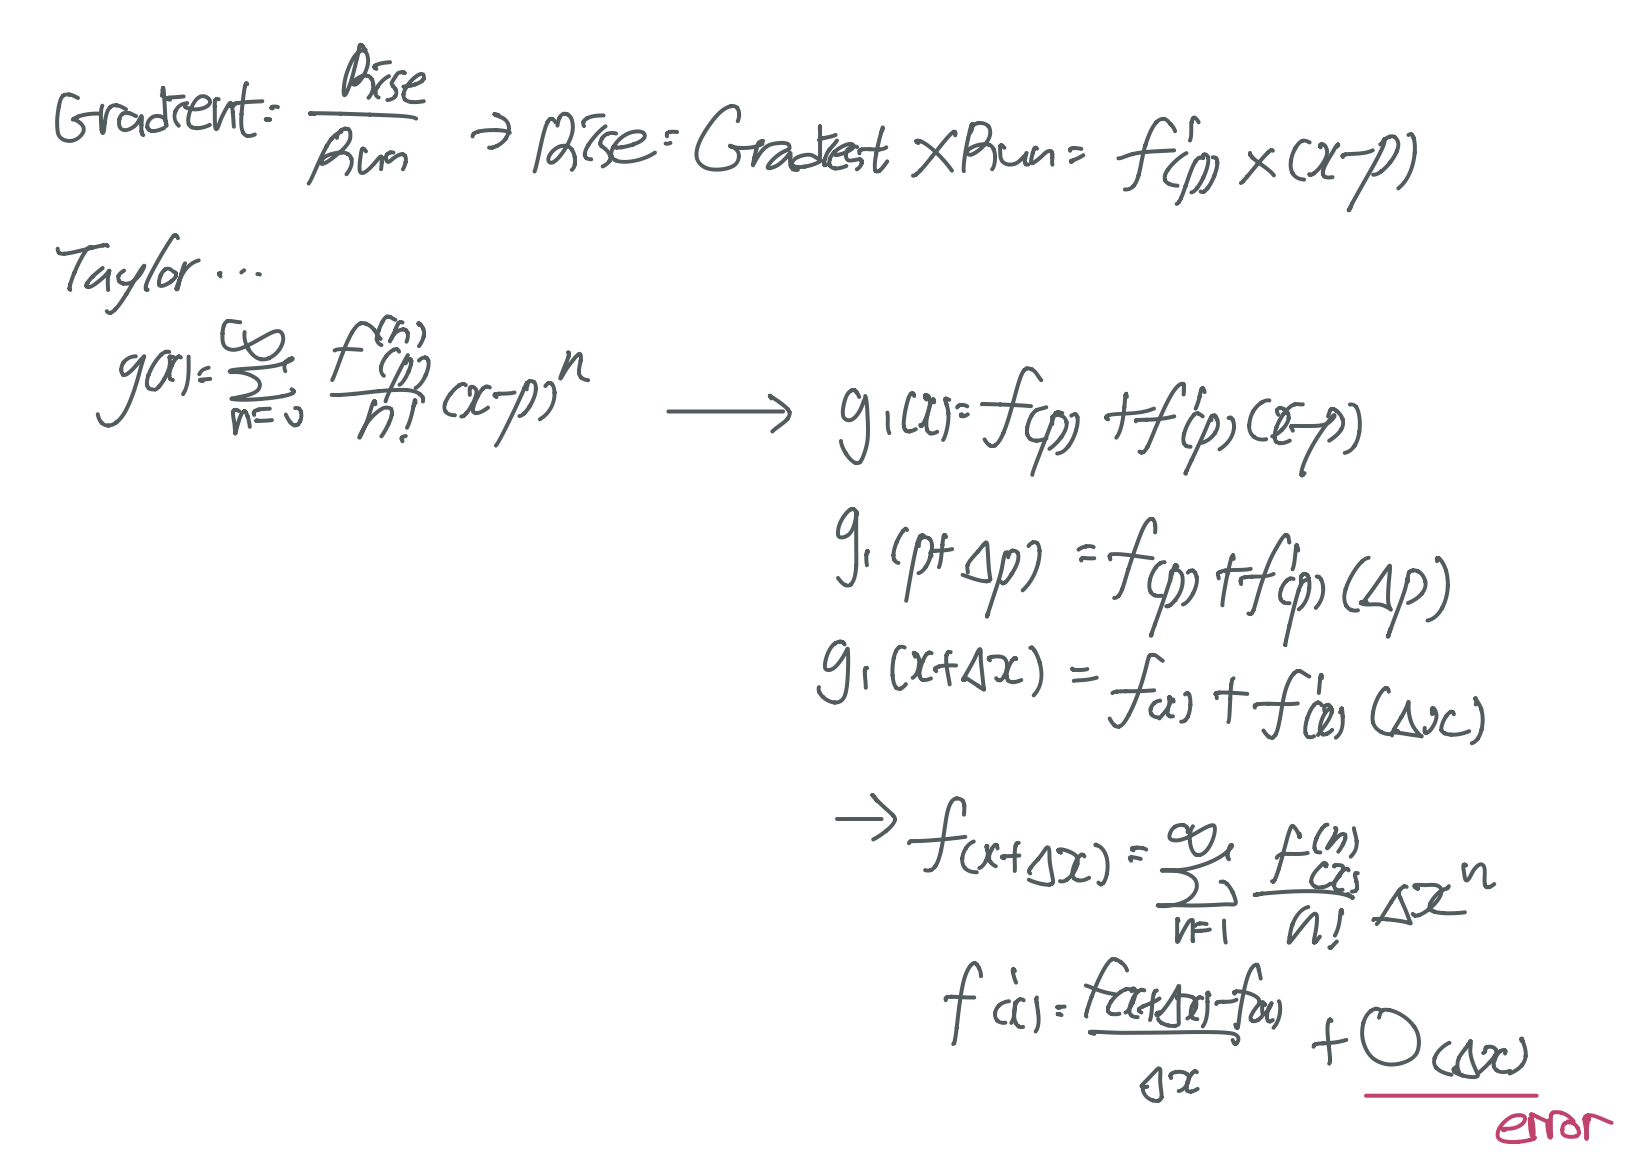 Gradient = Rise/Run → Rise = Gradient × Run = f'(p) × (x-p)
Taylor ...
g(x) = ∑_{n=0}^{∞} f^{(n)}(p)/n! (x-p)^n → g₁(x) = f(p) + f'(p)(x-p)
g₁(p+Δp) = f(p) + f'(p)(Δp)
g₁(x+Δx) = f(x) + f'(x)(Δx)
→ f(x+Δx) = ∑_{n=1}^{∞} f^{(n)}(x)/n! Δx^n
f'(x) = f(x+Δx)-f(x)/Δx + O(Δx)
error